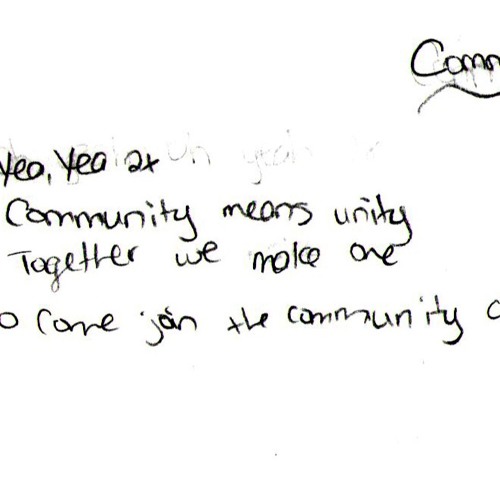 Comm
Yea, Yea 2x uh yeah
Community means unity
Together we make one
o Come join the community